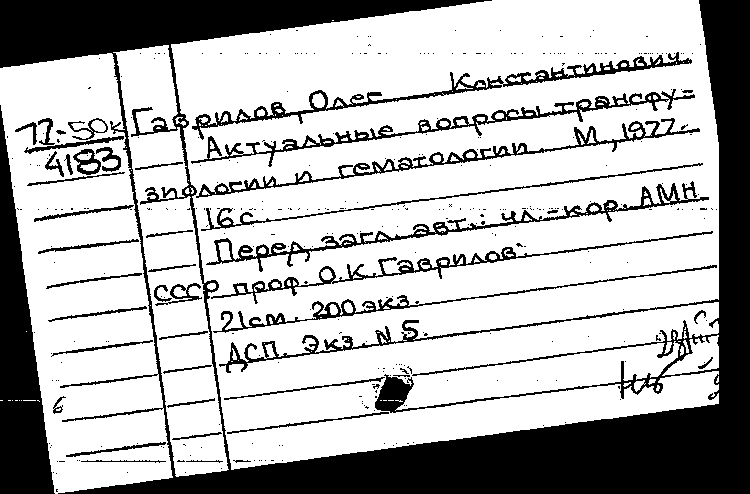 77-50к
4183
Гаврилов, Олег Константинович.
Актуальные вопросы трансфу=
зиологии и гематологии. М., 1977.-
16с.
Перед загл. авт.: чл.-кор. АМН
СССР проф. О.К.Гаврилов.
21см. 200 экз.
ДСП. Экз. N 5.
6